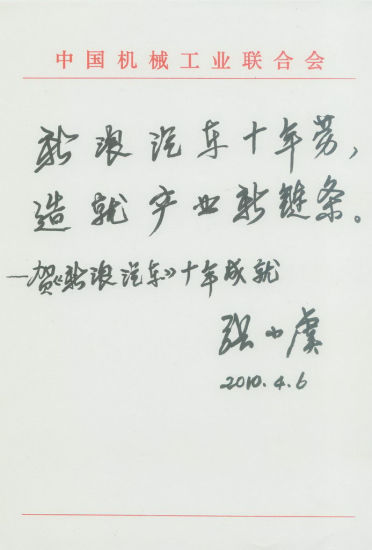 中国机械工业联合会
新浪汽车十年劳，
造就产业新链条。
—贺《新浪汽车》十年成就
张小虞
2010.4.6